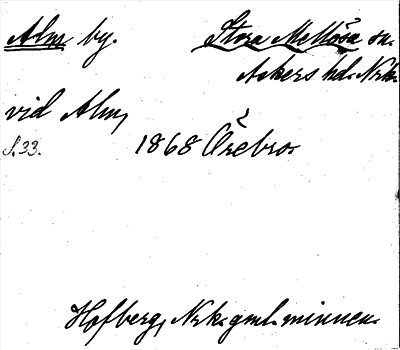 Alm by. Stora Mellösa sn.
Askers hd. Nrk.
vid Alm,
S. 33. 1868 Örebro.
Hofberg, Nrk. gml. minnen.